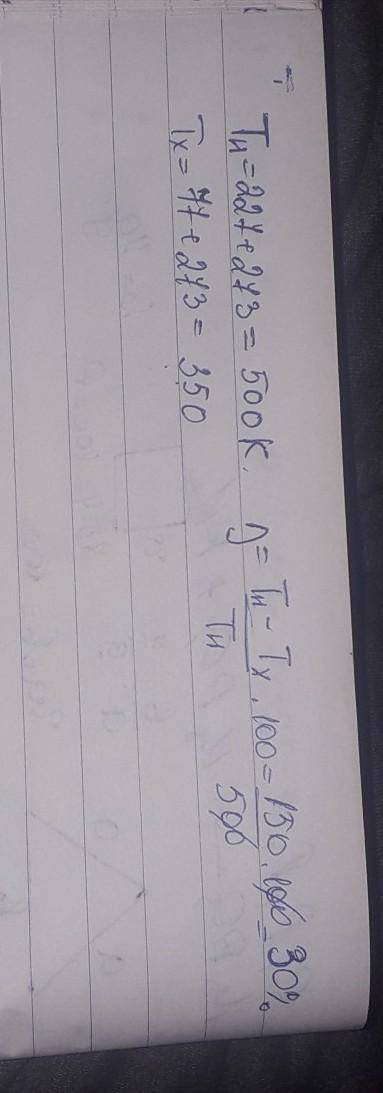 Tн = 227 + 273 = 500K. η = Tн - Tх / Tн · 100 = 150 / 500 · 100 = 30%
Tх = 77 + 273 = 350